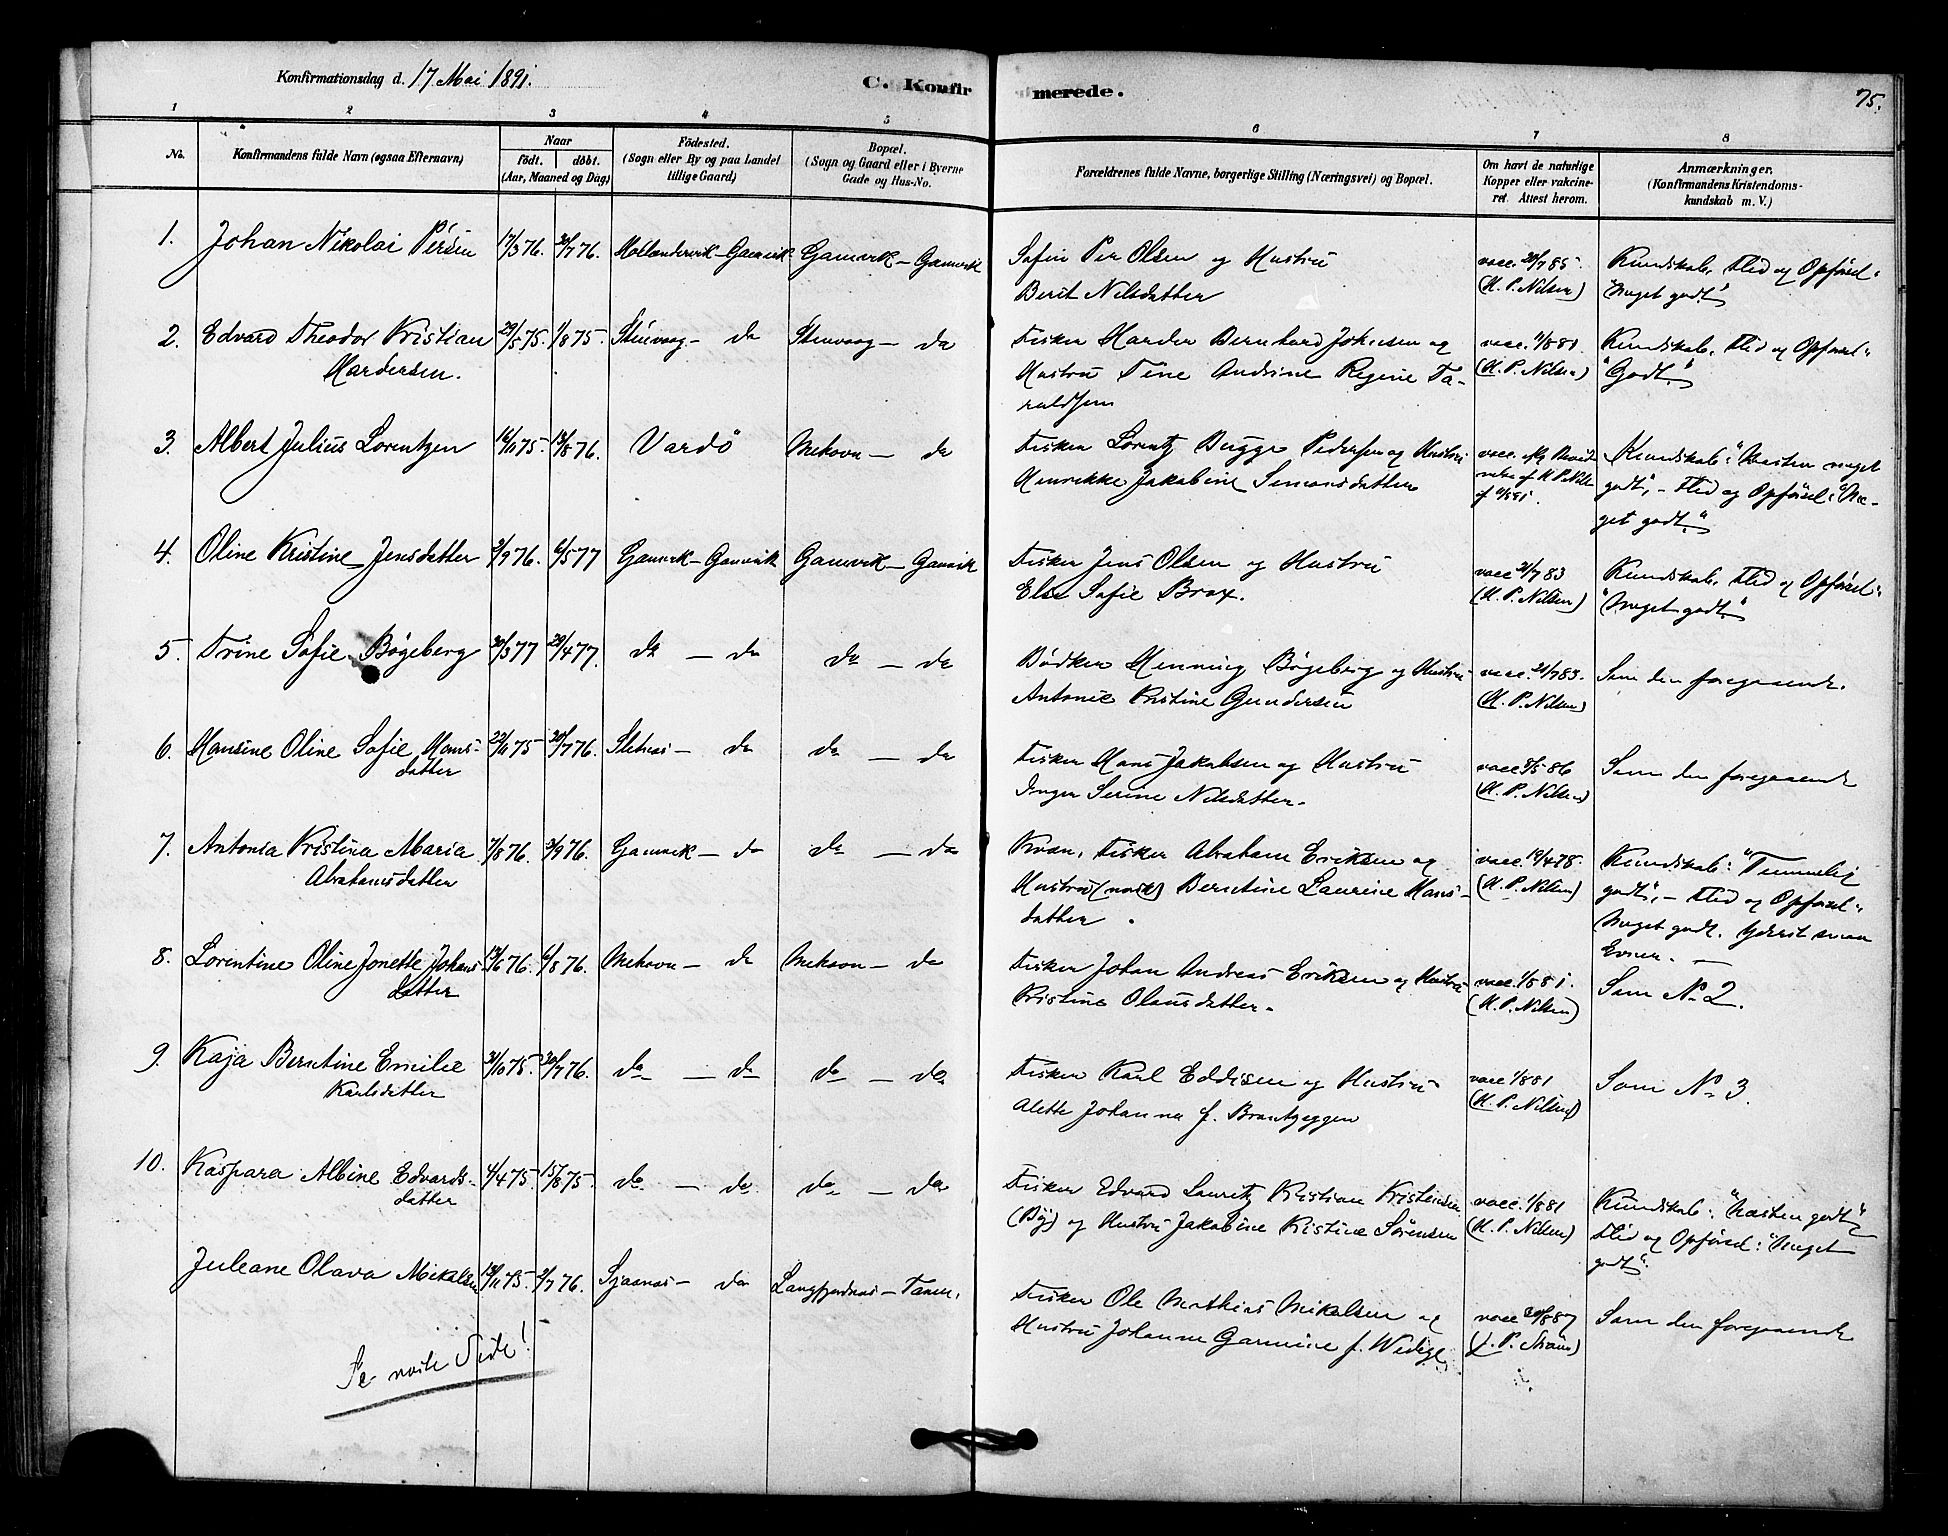 Konfirmationsdag d. 17 Mai 1891.
C. Konfirmerede.
75.
1 2 3 4 5 6 7 8
No.
Konfirmandens fulde Navn (ogsaa Efternavn)
Naar
født. døbt.
(Aar, Maaned og Dag)
Fødested.
(Sogn eller By og paa Landet
tillige Gaard)
Bopæl.
(Sogn og Gaard eller i Byerne
Gade og Hus-No.
Forældrenes fulde Navne, borgerlige Stilling (Næringsvei) og Bopæl.
Om havt de naturlige
Kopper eller vakcine-
ret. Attest herom.
Anmærkninger.
(Konfirmandens Kristendoms-
kundskab m. V.)
1. Johan Nikolai Persen 17/3 76. 30/7 76. Hollændervik - Gamvik Gamvik - Gamvik
Per Olsen og Hustru
Berit Nilsdatter
vacc. 85.
(H. P. Nilsen)
Kundskab, Flid og Opførsel:
"Meget godt"
2. Edvard Theodor Kristian
Hardersen.
29/5 75. 1/8 75. Stenvaag - do Stenvaag - do
Fisker Harder Bernhard Johnsen og
Hustru Tine Andrine Regine Ta-
raldsen
vacc. 1/8 81.
(H. P. Nilsen)
Kundskab, Flid og Opførsel:
"Godt."
3. Albert Julius Lorentzen 16/11 75. 13/8 76. Vardö Mehavn - do
Fisker Lorentz Bugge Pedersen og Hustru
Henrikke Jakobine Simonsdatter
vacc.
Kundskab: "Næsten meget
godt", - Flid og Opførsel: "Me-
get godt."
4. Oline Kristine Jensdatter 3/9 76. 6/5 77 Gamvik - Gamvik Gamvik - Gamvik
Fisker Jens Olsen og Hustru
Else Sofie Brox.
vacc 21/7 83
(H. P. Nilsen)
Kundskab, Flid og Opførsel:
"Meget godt."
5. Trine Sofie Bøgeberg 30/3 77 29/4 77. do - do do - do
Bødker Henning Bøgeberg og Hustru
Antonie Kristine Gundersen
vacc. 21/7 83.
(H. P. Nilsen)
Som den foregaaende.
6. Hansine Oline Sofie Hans-
datter
22/11 75 30/7 76. Sletnes - do do - do
Fisker Hans Jakobsen og Hustru
Inger Serine Nilsdatter.
vacc 86
(H. P. Nilsen)
Som den foregaaende
7. Antonia Kristina Maria
Abrahamsdatter
7/8 76. 3/9 76. Gamvik - do do - do
Kvæn, Fisker Abraham Eriksen og
Hustru (norsk) Berntine Laurine Hans-
datter
vacc. 12/4 78.
(H. P. Nilsen)
Kundskab: "Temmelig
godt", - Flid og Opførsel:
Meget godt. Yderst smaa
Evner. -
8. Lorentine Oline Jonette Johans-
datter
13/6 76. 6/8 76. Mehavn - do Mehavn - do
Fisker Johan Andreas Eriksen og Hustru
Kristine Olausdatter.
vacc. 1/8 81.
(H. P. Nilsen)
Som No 2.
9. Kaja Berntine Emilie
Karlsdatter
31/10 75. 30/7 76. do - do do - do
Fisker Karl Eddisen og Hustru
Alette Johanna f. Brantzeggen
vacc 1/8 81
(H. P. Nilsen)
Som No 3.
10. Kaspara Albine Edvards-
datter
4/4 75. 15/8 75. do - do do - do
Fisker Edvard Lauritz Kristian Kristensen
(Bø) og Hustru Jakobine Kristine Sørensen
vacc. 1/8 81
(H. P. Nilsen)
Kundskab: "Næsten godt",
Flid og Opførsel: "Meget
godt".
Juleane Olava Mikalsen 19/11 75. 2/7 76. Sjaanes - do Langfjordnes - Tanen.
Fisker Ole Mathias Mikalsen og
Hustru Johanne Garmine f. Wedige.
vacc 20/8 87
Som den foregaaende
Se næste Side!